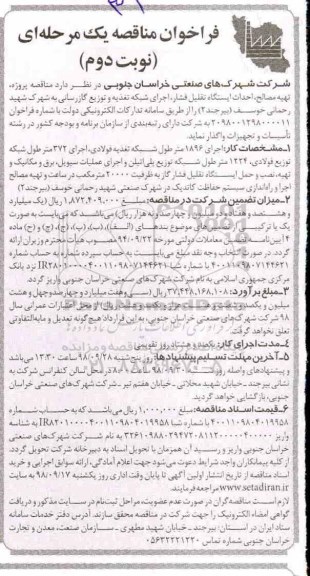 فراخوان مناقصه یک مرحله‌ای
(نوبت دوم)
شرکت شهرک‌های صنعتی خراسان جنوبی در نظر دارد مناقصه پروژه،
تهیه مصالح، احداث ایستگاه تقلیل فشار، اجرای شبکه تغذیه و توزیع گازرسانی به شهرک شهید
رحمانی خوسف (بیرجند۲) را از طریق سامانه تدارکات الکترونیکی دولت با شماره فراخوان
به شرکت دارای رتبه‌بندی از سازمان برنامه و بودجه کشور در رشته
تأسیسات و تجهیزات واگذار نماید.
۱ـ مشخصات کار: اجرای ۱۸۹۶ متر طول شبکه تغذیه فولادی، اجرای ۳۷۲ متر طول شبکه
توزیع فولادی، ۱۲۲۴ متر طول شبکه توزیع پلی‌اتیلن و اجرای عملیات سیویل، برق و مکانیک و
تهیه، نصب و حمل ایستگاه تقلیل فشار گاز به ظرفیت ۲۰۰۰۰ مترمکعب در ساعت و تهیه مصالح
اجرا و راه‌اندازی سیستم حفاظت کاتدیک در شهرک صنعتی شهید رحمانی خوسف (بیرجند۲)
۲ـ میزان تضمین شرکت در مناقصه: مبلغ ۱,۸۷۲,۴۰۹,۰۰۰ ریال (یک میلیارد
و هشتصد و هفتاد و دو میلیون و چهارصد و نه هزار ریال) می‌باشد که می‌بایست به صورت
یک یا ترکیبی از ضمانت‌های موضوع بندهای (الف)، (ب)، (پ)، (ج)، (چ) و (ح) ماده
۴ آیین‌نامه تضمین معاملات دولتی مورخه ۹۴/۰۹/۲۲ مصوب هیأت محترم وزیران ارائه
گردد. در صورت انتخاب وجه نقد مبلغ می‌بایست به حساب سپرده شماره به حساب شماره
نزد بانک
مرکزی جمهوری اسلامی به نام شرکت شهرک‌های صنعتی خراسان جنوبی واریز گردد
۳ـ مبلغ برآورد: ۳۷,۴۴۸,۱۶۸,۱۰۸ ریال
میلیون و یکصد و شصت و هشت هزار و یکصد و هشت ریال) از محل اعتبارات عمرانی سال
۹۸ شرکت شهرک‌های صنعتی خراسان جنوبی، به این قرارداد هیچ‌گونه تعدیل و مابه‌التفاوتی
تعلق نخواهد گرفت.
۴ـ مدت اجرای کار: یکصد و هشتاد روز تقویمی
۵ـ آخرین مهلت تسلیم پیشنهادها: روز پنج‌شنبه ۹۸/۰۹/۲۸ ساعت ۱۳:۳۰ می‌باشد
و پیشنهادهای واصله روز شنبه ۹۸/۰۹/۳۰ ساعت در محل سالن کنفرانس شرکت به
نشانی بیرجند ـ خیابان شهید محلاتی ـ خیابان هفتم تیر ـ شرکت شهرک‌های صنعتی خراسان
جنوبی، بازگشایی خواهد گردید.
۶ـ قیمت اسناد مناقصه: مبلغ ۱,۰۰۰,۰۰۰ ریال می‌باشد که به حساب شماره
به شناسه
واریز به نام شرکت شهرک‌های صنعتی
خراسان جنوبی واریز و رسید آن همزمان با تحویل اسناد به دبیرخانه شرکت تحویل گردد.
از کلیه پیمانکاران واجد شرایط دعوت می‌شود جهت اعلام آمادگی، ارائه سوابق اجرایی و خرید
اسناد مناقصه از تاریخ انتشار اولین آگهی تا پایان وقت اداری روز یکشنبه ۹۸/۰۹/۱۷ به سایت
www.setadiran.ir مراجعه فرمایند.
لازم است مناقصه‌گران در صورت عدم عضویت، مراحل ثبت‌نام در سایت مذکور و دریافت
گواهی امضاء الکترونیک را جهت شرکت در مناقصه محقق سازند. آدرس دفتر خدمات سامانه
ستاد ایران در استان: بیرجند ـ خیابان شهید مطهری ـ سازمان صنعت، معدن و تجارت
خراسان جنوبی شماره تماس ۰۵۶۳۲۲۲۱۲۲۰